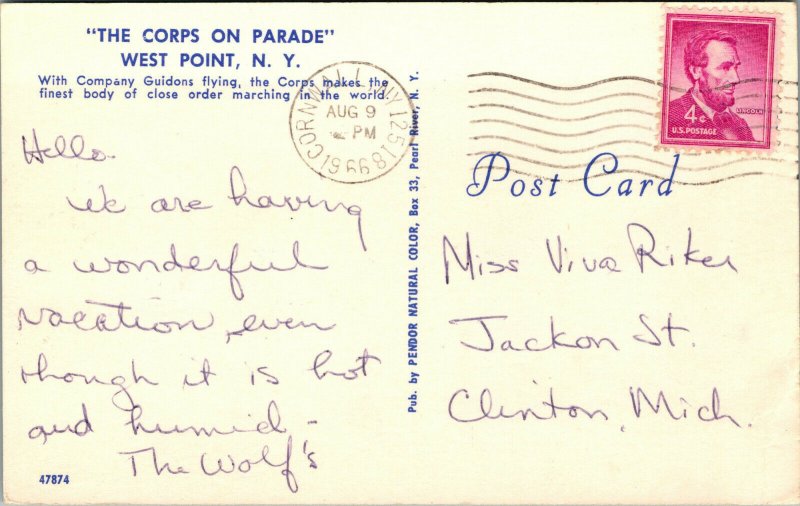 "THE CORPS ON PARADE"
WEST POINT, N. Y.
With Company Guidons flying, the Corps makes the
finest body of close order marching in the world.
Hello.
We are having
a wonderful
vacation, even
though it is hot
and humid -
The Wolf's
47874
Pub. by PENDOR NATURAL COLOR, Box 33, Pearl River, N. Y.
CORNWALL, NY 12518
AUG 9
PM
1966
4¢
LINCOLN
U.S. POSTAGE
Post Card
Miss Viva Riker
Jackon St.
Clinton, Mich.